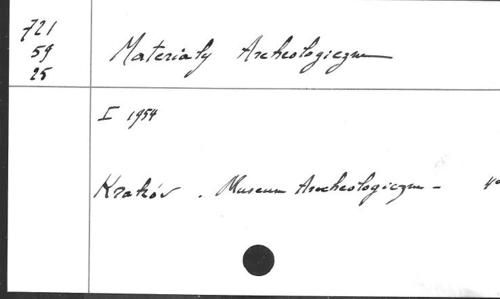 721
59
25
Materiały Archeologiczne
I 1954
Kraków. Museum Archeologiczne - 4o